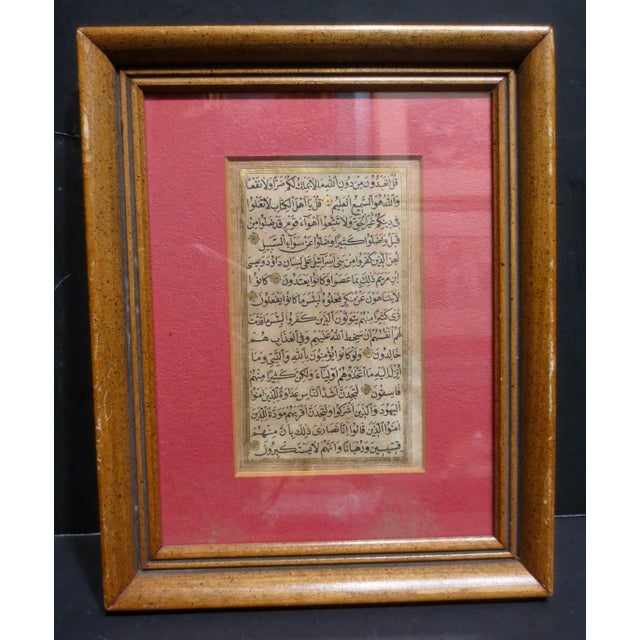 قُلْ أَتَعْبُدُونَ مِنْ دُونِ اللَّهِ مَا لَا يَمْلِكُ لَكُمْ ضَرًّا وَلَا نَفْعًا
وَاللَّهُ هُوَ السَّمِيعُ الْعَلِيمُ قُلْ يَا أَهْلَ الْكِتَابِ لَا تَغْلُوا
فِي دِينِكُمْ غَيْرَ الْحَقِّ وَلَا تَتَّبِعُوا أَهْوَاءَ قَوْمٍ قَدْ ضَلُّوا مِنْ
قَبْلُ وَأَضَلُّوا كَثِيرًا وَضَلُّوا عَنْ سَوَاءِ السَّبِيلِ
لُعِنَ الَّذِينَ كَفَرُوا مِنْ بَنِي إِسْرَائِيلَ عَلَى لِسَانِ دَاوُدَ وَعِيسَى
ابْنِ مَرْيَمَ ذَلِكَ بِمَا عَصَوْا وَكَانُوا يَعْتَدُونَ كَانُوا
لَا يَتَنَاهَوْنَ عَنْ مُنْكَرٍ فَعَلُوهُ لَبِئْسَ مَا كَانُوا يَفْعَلُونَ
تَرَى كَثِيرًا مِنْهُمْ يَتَوَلَّوْنَ الَّذِينَ كَفَرُوا لَبِئْسَ مَا قَدَّمَتْ
لَهُمْ أَنْفُسُهُمْ أَنْ سَخِطَ اللَّهُ عَلَيْهِمْ وَفِي الْعَذَابِ هُمْ
خَالِدُونَ وَلَوْ كَانُوا يُؤْمِنُونَ بِاللَّهِ وَالنَّبِيِّ وَمَا
أُنْزِلَ إِلَيْهِ مَا اتَّخَذُوهُمْ أَوْلِيَاءَ وَلَكِنَّ كَثِيرًا مِنْهُمْ
فَاسِقُونَ لَتَجِدَنَّ أَشَدَّ النَّاسِ عَدَاوَةً لِلَّذِينَ آمَنُوا
الْيَهُودَ وَالَّذِينَ أَشْرَكُوا وَلَتَجِدَنَّ أَقْرَبَهُمْ مَوَدَّةً لِلَّذِينَ
آمَنُوا الَّذِينَ قَالُوا إِنَّا نَصَارَى ذَلِكَ بِأَنَّ مِنْهُمْ
قِسِّيسِينَ وَرُهْبَانًا وَأَنَّهُمْ لَا يَسْتَكْبِرُونَ